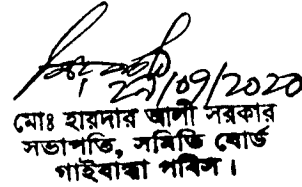 21/09/2020
মোঃ হায়দার আলী সরকার
সভাপতি, সমিতি বোর্ড
গাইবান্ধা পবিস।